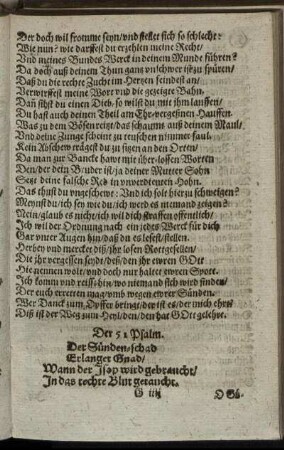 Der doch wil fromme seyn/und stellet sich so schlecht:
Wie nun? wie darffest du erzehlen meine Recht/
Und meines Bundes Werck in deinem Munde führen?
Da doch auß deinem Thun gantz unschwer ist zu spüren/
Daß du die rechte Zucht im Hertzen feindest an/
Verwirffest meine Wort und die gezeigte Bahn.
Dañ sihst du einen Dieb/so wilst du mit ihm lauffen/
Du hast auch deinen Theil am Ehr-vergeßnen-Hauffen.
Was zu dem Bösen reitzt/das schaumt auß deinem Maul/
Und deine Zunge scheint zu treuschen nimmer faul.
Kein Abschew trägest du zu sitzen an den Orten/
Da man zur Bancke hawt mit über-losen Worten
Den/der dein Bruder ist/ja deiner Mutter Sohn
Setzt deine falsche Red in unverdienten Hohn.
Das thust du ungeschewt: Und ich solt hier zu schweigen?
Meynst du/ich sey wie du/ich werd es niemand zeigen?
Nein/glaub es nicht/ich wil dich straffen offentlich/
Ich wil der Ordnung nach ein jedes Werck für dich
Gar unter Augen hin/daß du es lesest/stellen.
Herbey und mercket diß/ihr losen Rottgesellen/
Die ihr vergessen seydt/deß/den ihr ewren GOtt
Hie nennen wolt/und doch nur haltet ewren Spott.
Ich komm und reiß hin/wo niemand sich wird finden/
Der euch erretten mag/umb wegen ewrer Sünden.
Wer Danck zum Opffer bringt/der ist es/der mich ehrt/
Diß ist der Weg zum Heyl/den/den hat GOtt gelehrt.
Der 51 Psalm.
Der Sünden/schad
Erlanget Gnad/
Wann der Jsop wird gebraucht/
In das rechte Blut getaucht.
G iiij